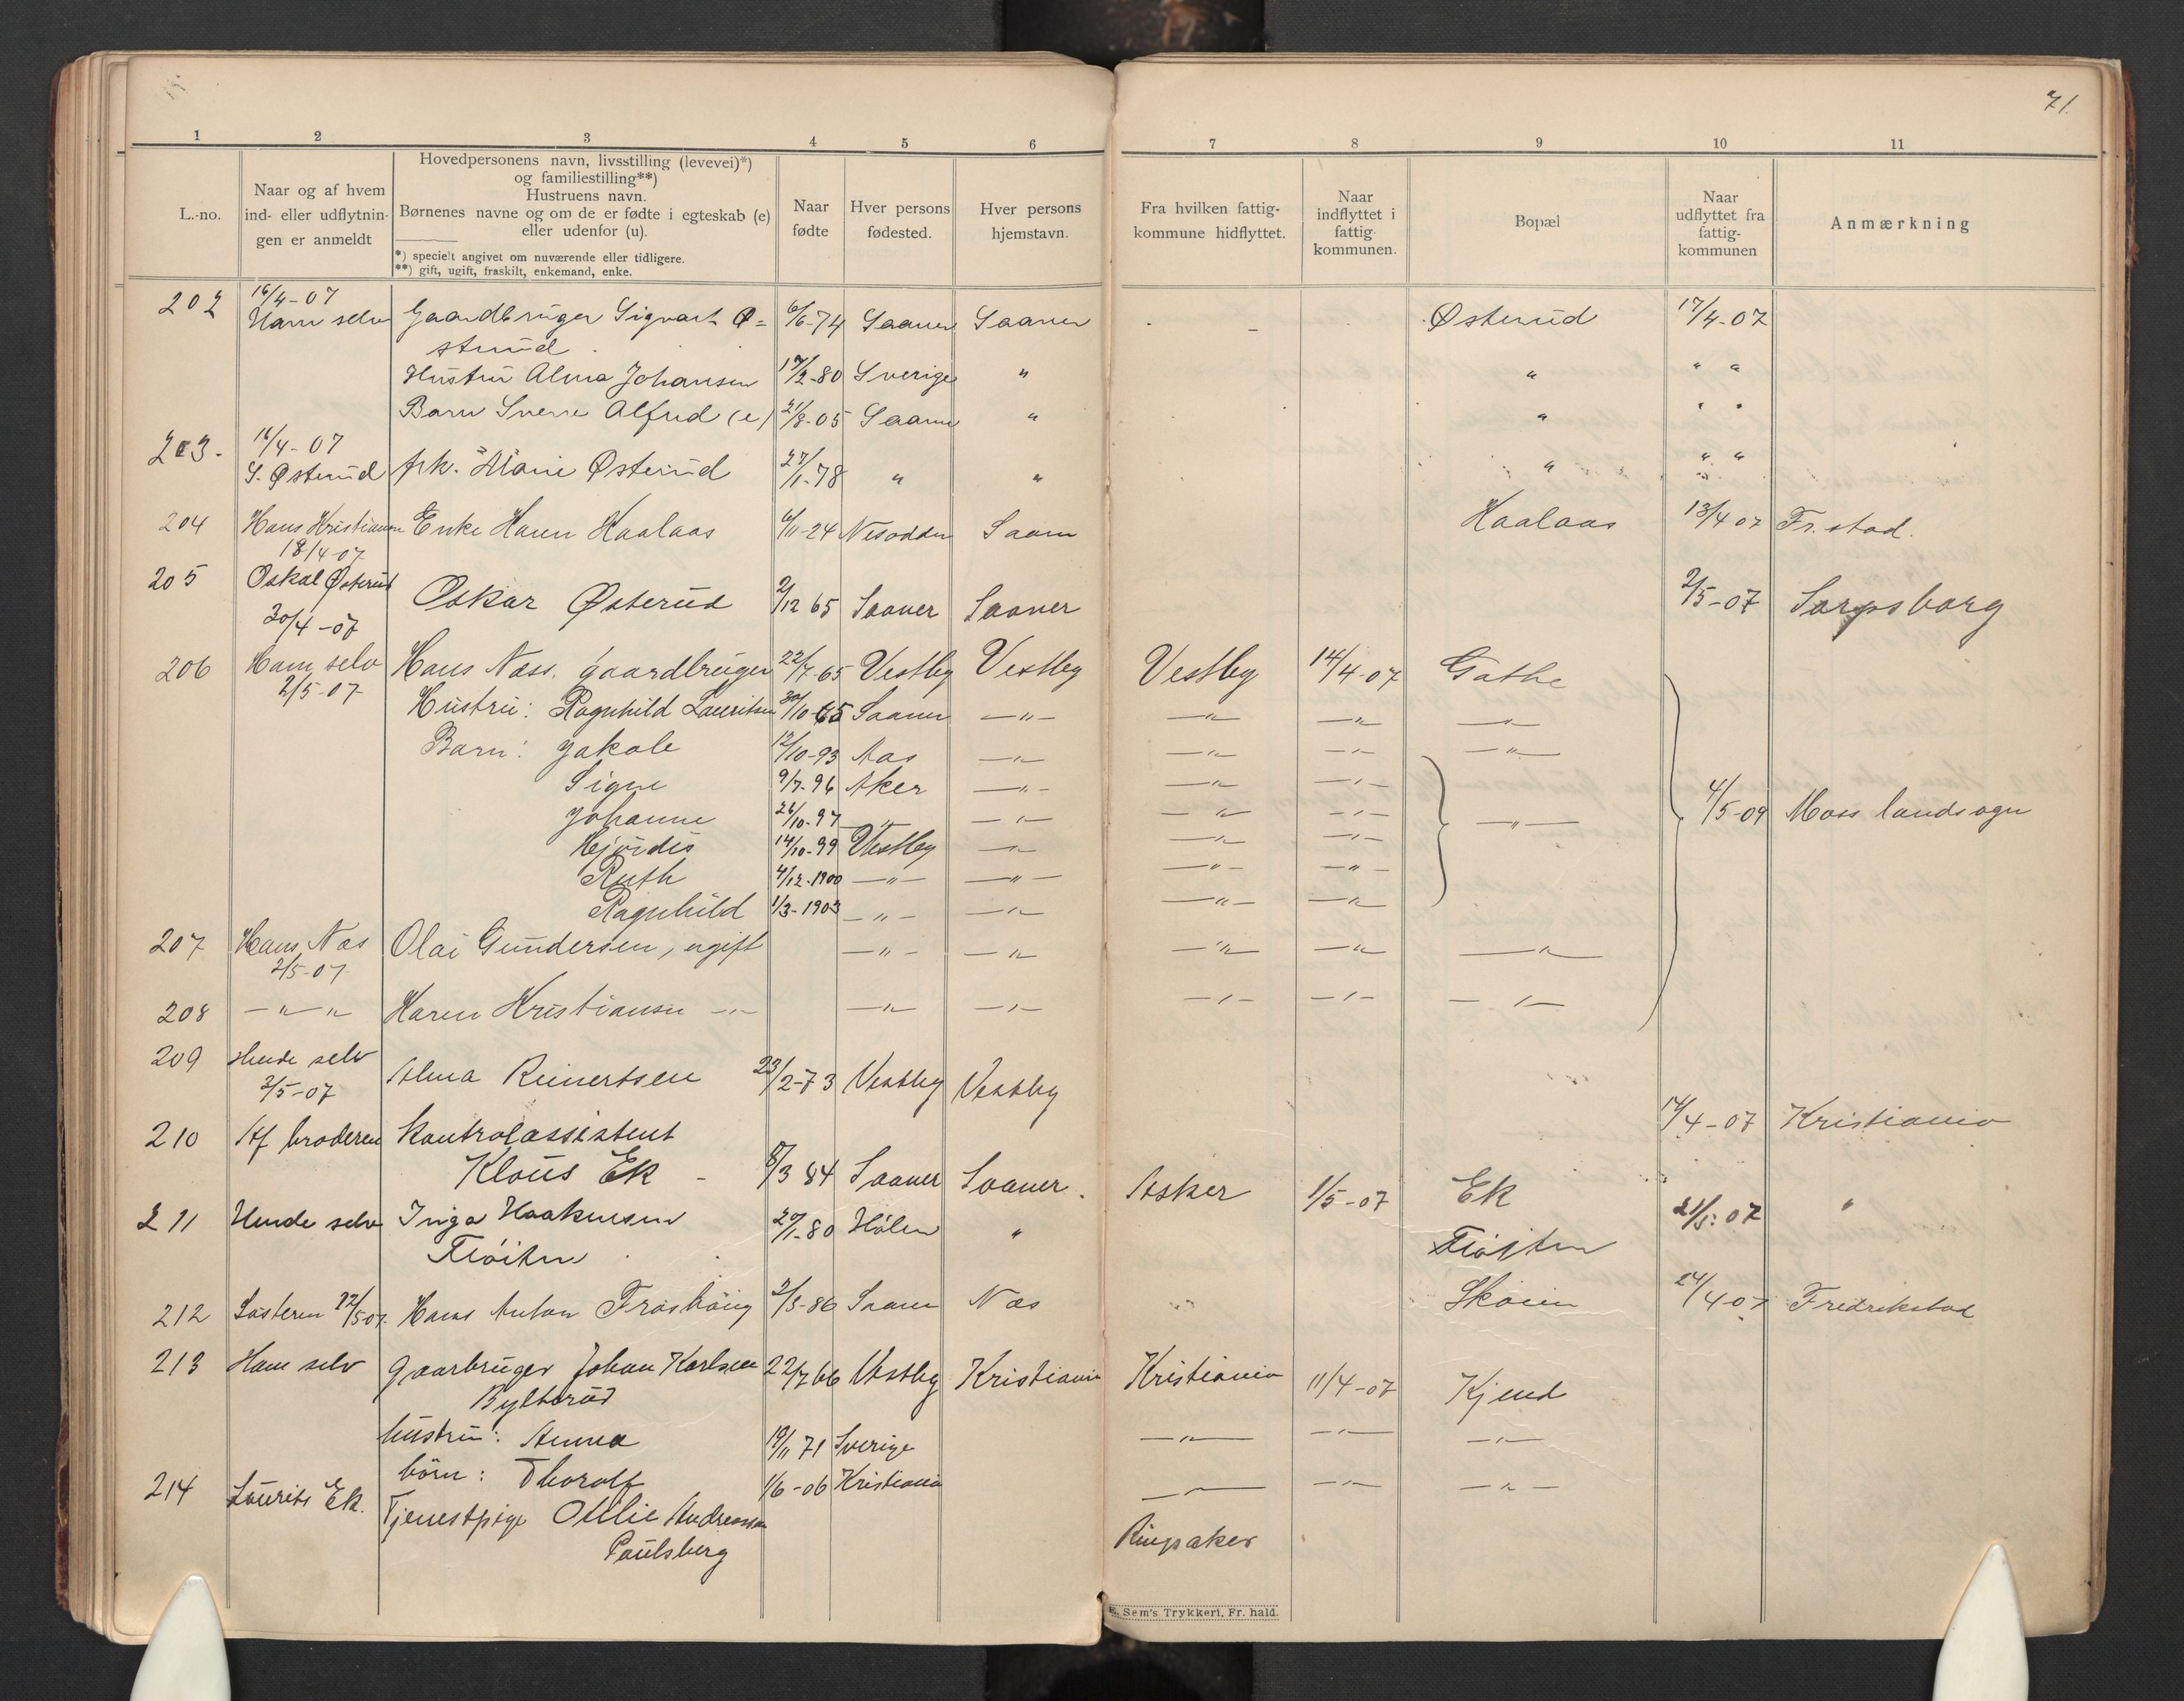 71.
1 2 3 4 5 6 7 8 9 10 11
L.-no.
Naar og af hvem
ind- eller udflytnin-
gen er anmeldt
Hovedpersonens navn, livsstilling (levevei)*)
og familiestilling**)
Hustruens navn.
Børnenes navne og om de er fødte i egteskab (e)
eller udenfor (u).
*) specielt angivet om nuværende eller tidligere.
**) gift, ugift, fraskilt, enkemand, enke.
Naar
fødte
Hver persons
fødested.
Hver persons
hjemstavn.
Fra hvilken fattig-
kommune hidflyttet.
Naar
indflyttet i
fattig-
kommunen.
Bopæl
Naar
udflyttet fra
fattig-
kommunen
Anmærkning
202 16/4-07 Ham selv Gaardbruger Sigvart Ø= 6/6-74 Saaner Saaner - Østerud 17/4-07
sterud
Hustru Alma Johansen 17/2-80 Sverige " " " "
Barn Sverre Alfred (e) 21/8-05 Saaner " " " "
203. 16/4-07 S. Østerud frk. Marie Østerud 27/1-78 " " " " "
204 Hans Kristiansen Enke Karen Haalaas 6/11-24 Nesodden Saaner Haalaas 13/4 07 Fr.stad.
18/4-07
205 Oskal Østerud Oskar Østerud 2/12 65 Saaner Saaner 2/5-07 Sarpsborg
30/4-07
206 Ham selv Hans Næss. gaardbruger 22/7-65 Vestby Vestby Vestby 14/4-07 Gathe
2/5-07 Hustru: Ragnhild Lauritsen 30/10-65 Saaner —"— —"— —"— —"—
Barn: Jakob 12/10-93 Aas —"— —"— —"— —"—
Signe 9/7-96 Aker —"— —"— —"—
Johanne 26/10-97 —"— —"— —"— —"— —"— 4/5-09 Moss landsogn
Hjördis 14/10-99 Vestby —"— —"— —"—
Ruth 4/12-1900 —"— —"— —"— —"—
Ragnhild 1/3-1903 —"— —"— —"— —"—
207 Hans Næs Olai Gundersen, ugift —"— —"— —"— —"— —"—
2/5-07
208 —"—" Karen Kristiansen —"— —"— —"— —"— —"— —"—
209 Hende selv Alma Reinertsen 23/2-73 Vestby Vestby
2/5-07
14/4-07 Kristiania
210 Af broderen Kontrolassistent
Klaus Ek - 8/3 84 Saaner Saaner. Asker 1/5-07 Ek
211 Hende selv Inga Haakensen 20/1-80 Hölen " 21/5-07 "
Flöiten Flöjten
212 Søsteren 22/5 07. Hans Anton Froshaug 2/3-86 Saaner Næs Skøien 24/4 07 Fredrikstad
213 Ham selv gaarbruger Johan Karlsen 22/7 66 Vestby Kristiania Kristiania 11/4-07 Kjend
Bylterud
hustru: Anna 19/11 71 Sverige —"— —"— —"—
børn: Thorolf 1/6-06 Kristiania —"— —"— —"—
214 Laurits Ek. Tjenestpige Ottilie Andreassen
Paulsberg Ringsaker
E. Sem's Trykkeri, Fr. hald.